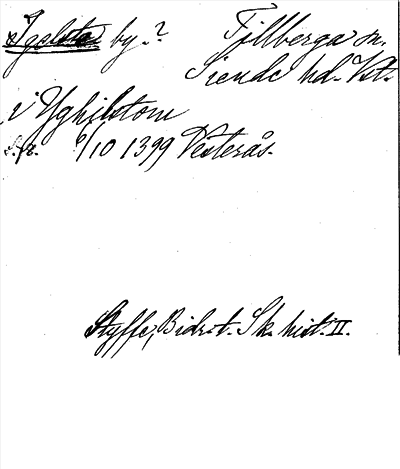 Igelsta by.? Tillberga sn.
Siende hd. Vst.
i Yghilstom
s.fr. 6/10 1399 Vesterås.
Styffe, Bidr. t. Sk. hist. II.